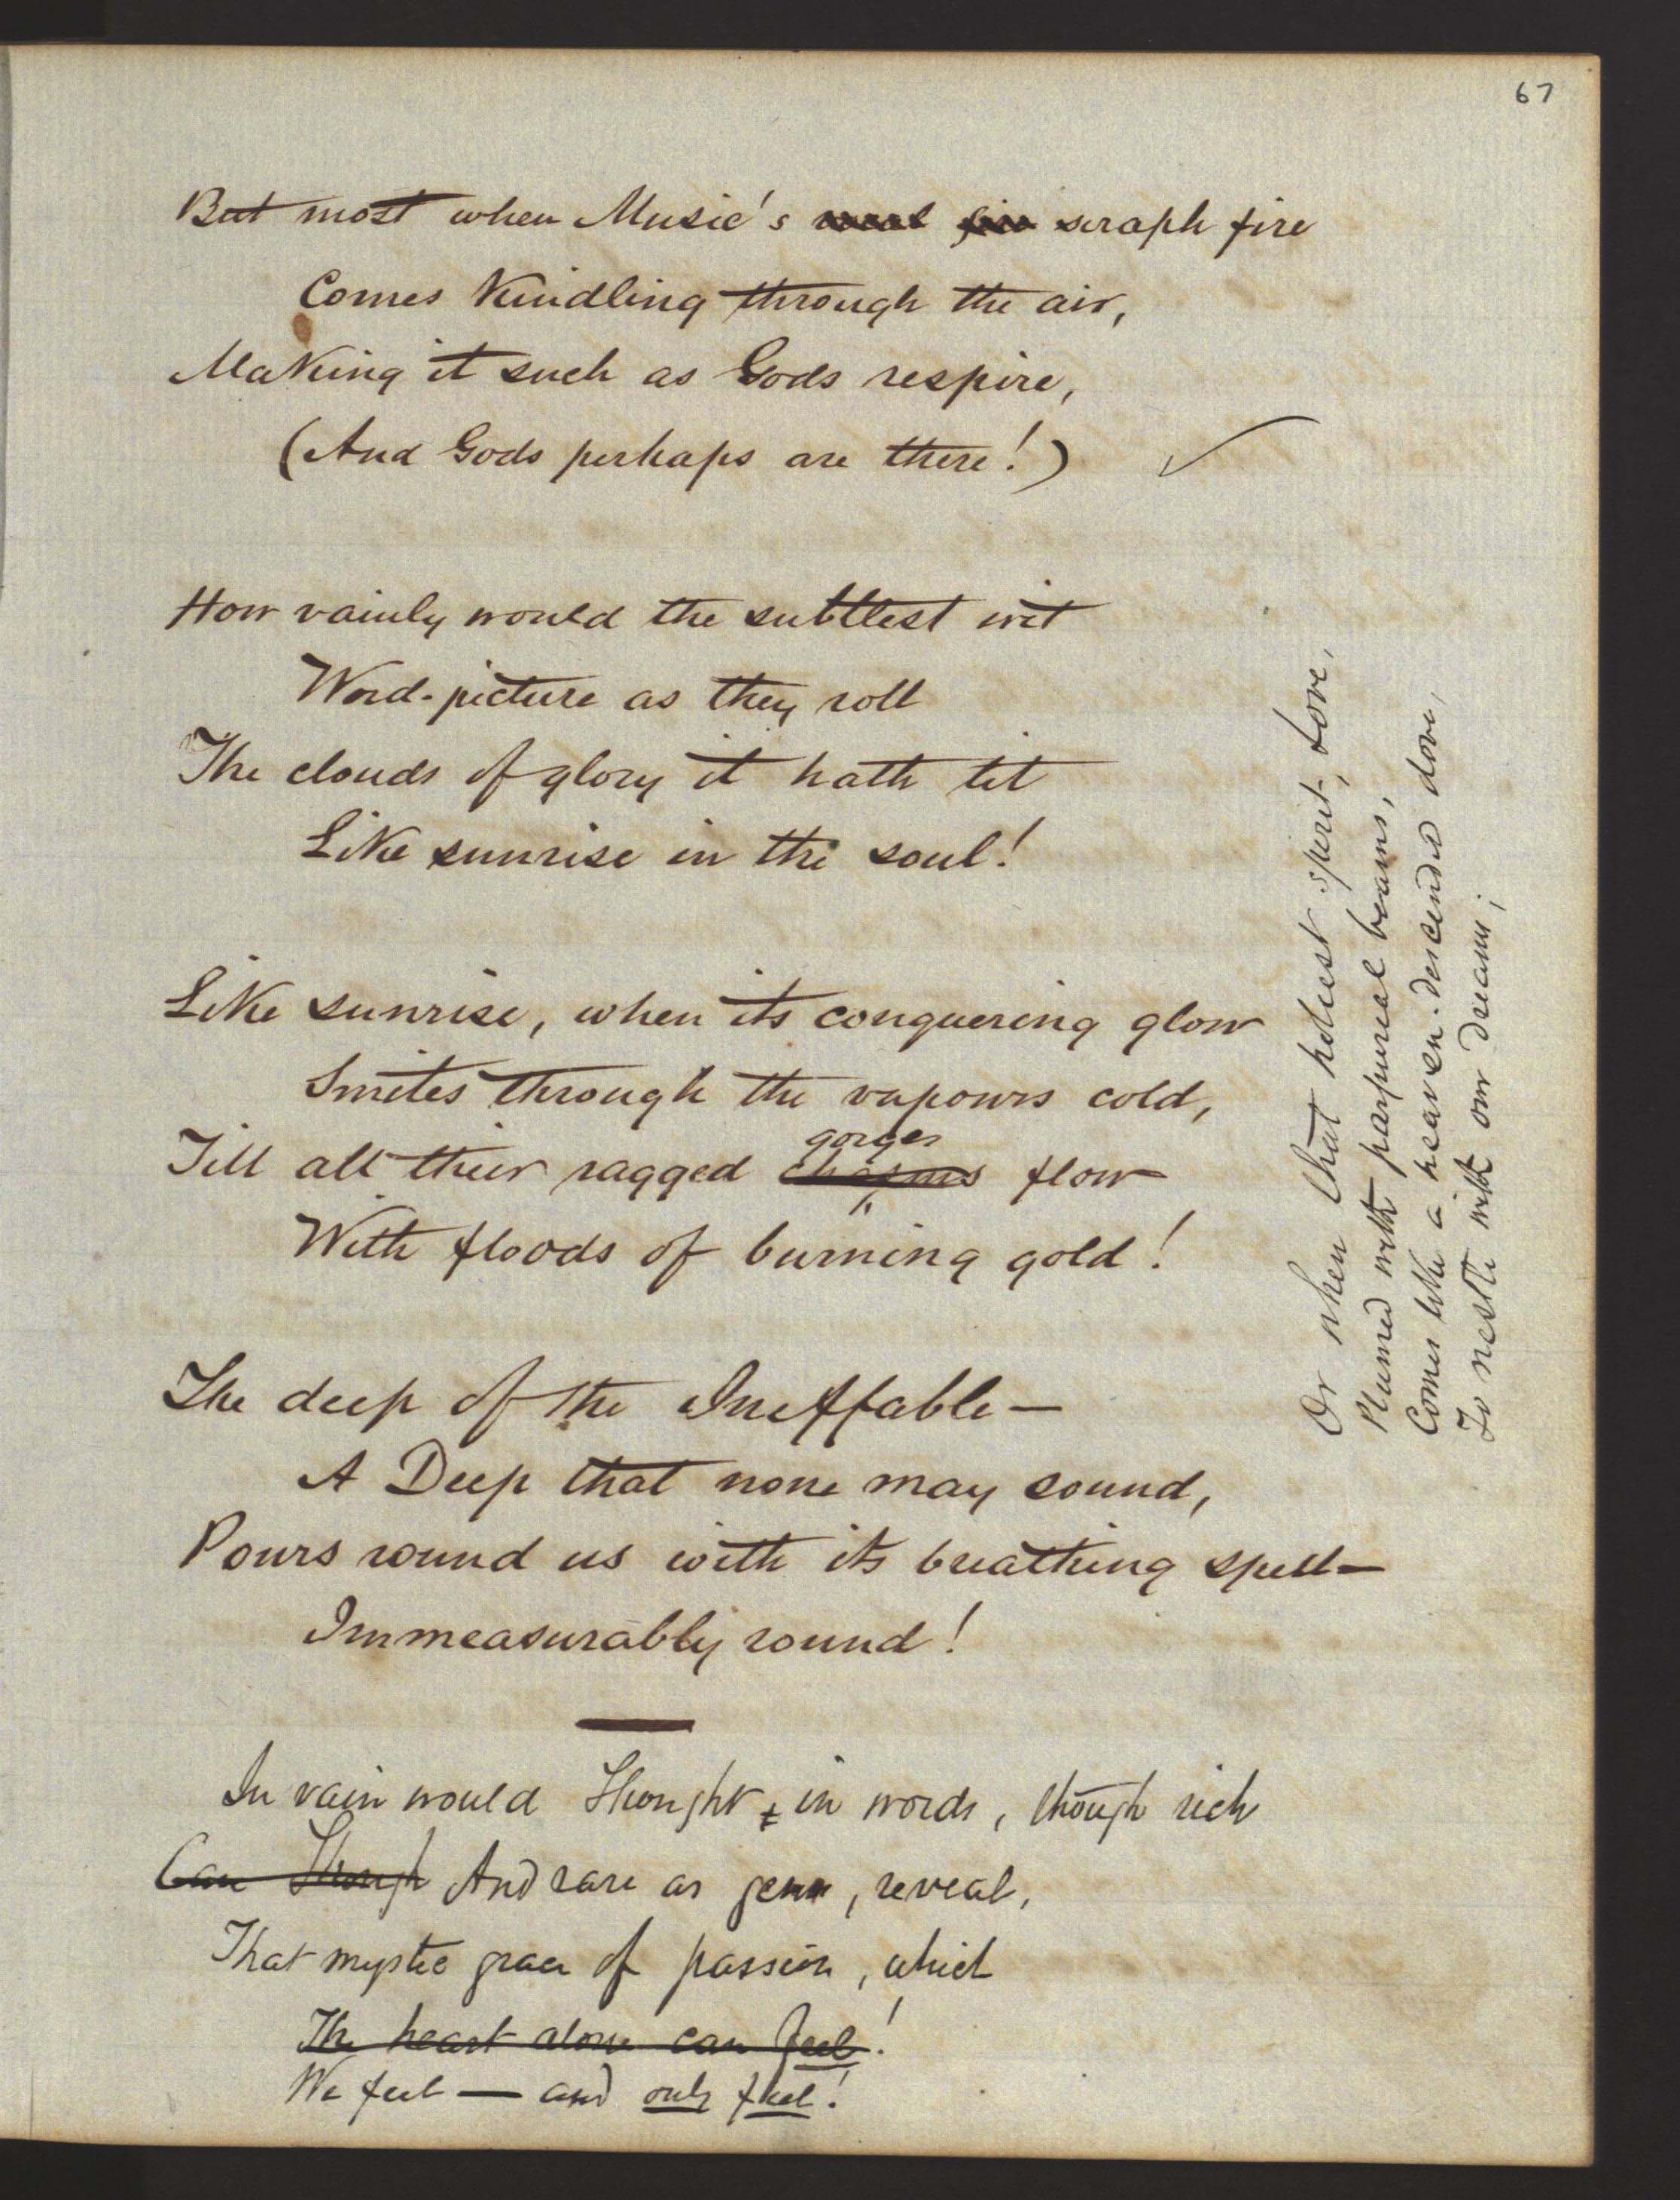 67
But most when Music's seraph fire
Comes Kindling through the air,
Making it such as Gods respire,
(And Gods perhaps are there!)
How vainly would the subtlest wit
Word-picture as they roll
The clouds of glory it hath lit
Like sunrise in the soul!
Like sunrise, when its conquering glow
Smites through the vapours cold,
gorges
Till all their ragged chasms flow
With floods of burning gold!
The deep of the Ineffable—
A Deep that none may sound,
Pours round us with its breathing spell—
Immeasurably round!
In vain would Thought, in words, though rich
Can Though And rare as gems, reveal,
That mystic grace of passion, which
The heart alone can feel!
We feel — and only feel!
Or when that holiest spirit, Love,
Plumed with purpureal beams,
Comes like a heaven-descended dove,
To nestle with our dreams;